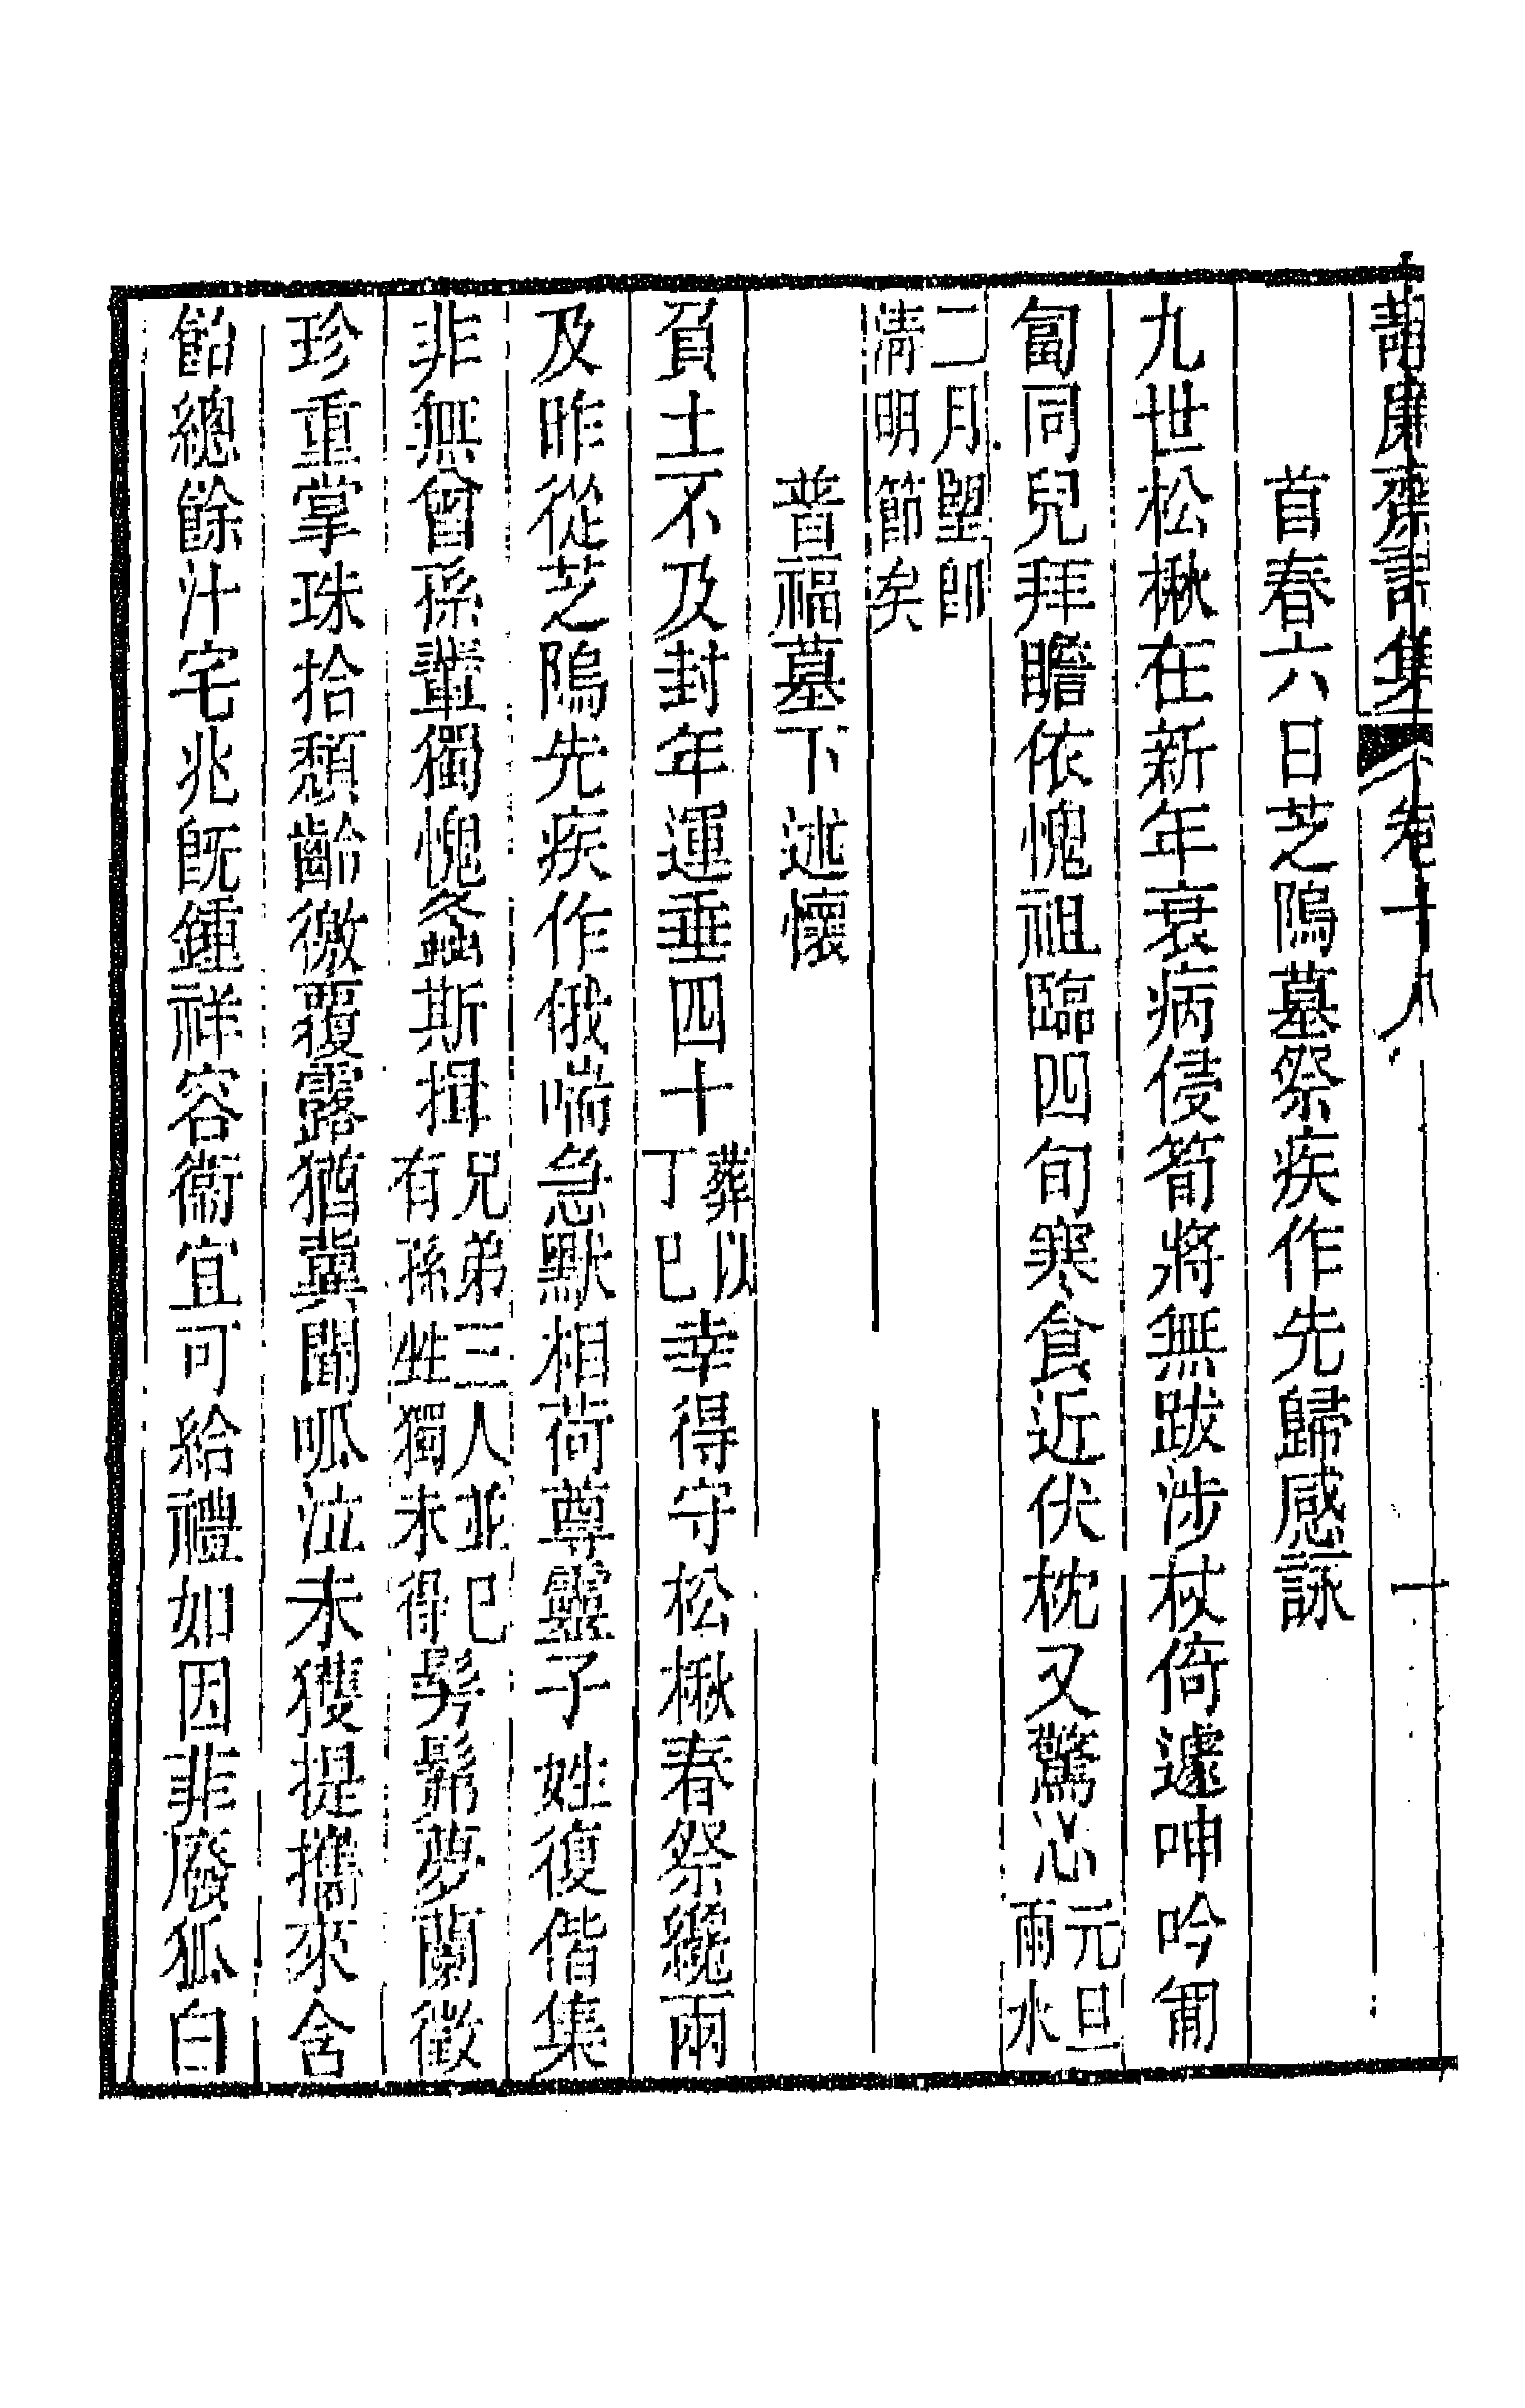 靜廉齋詩集 卷十八
首春六日芝隖墓祭疾作先歸感詠
九世松楸在新年衰病侵筍將無跋涉杖倚遽呻吟匍
匐同兒拜瞻依愧祖臨四旬寒食近伏枕又驚心元旦雨水
二月望卽
清明節矣
普福墓下述懷
負土不及封年運垂四十葬以丁巳幸得守松楸春祭纔兩
及昨從芝隖先疾作俄喘急默相荷尊靈子姓復偕集
非無曾孫輩獨愧螽斯揖兄弟三人並已有孫甡獨未得髣髴夢蘭徵
珍重掌珠拾頽齡徼覆露猶冀聞呱泣未獲提攜來含
飴總餘汁宅兆旣鍾祥容衞宜可給禮如因菲廢狐白